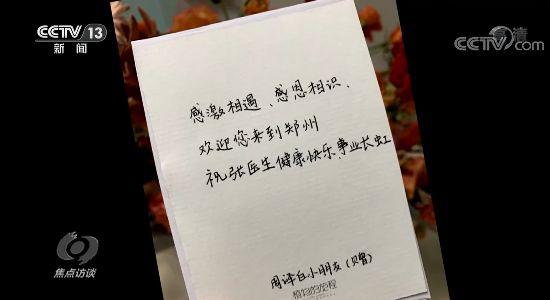 CCTV 13
新闻
CCTV.com
高清
感激相遇、感恩相识、
欢迎您来到郑州
祝张医生健康快乐、事业长虹
周译白小朋友(赠)
植物的旅程
焦点访谈